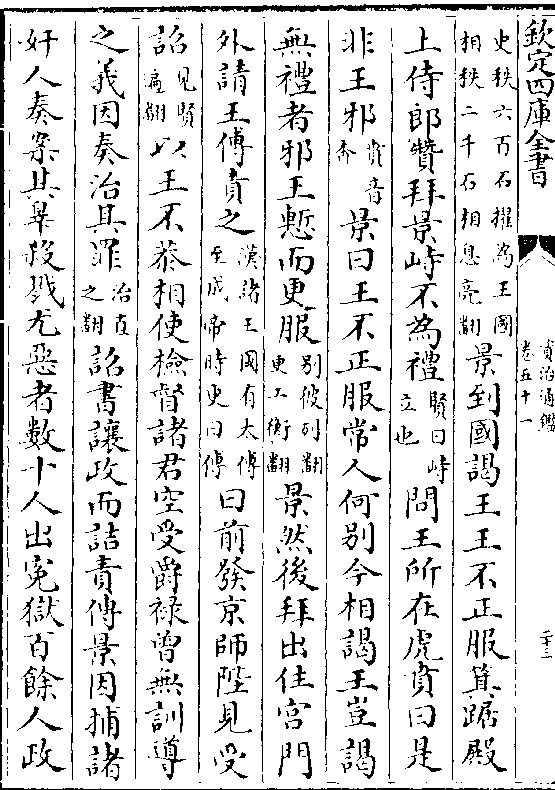 欽定四庫全書
資治通鑑
卷五十一
二十三
史秩六百石擢為王國
相秩二千石相息亮翻
景到國謁王王不正服箕踞殿
上侍郎贊拜景峙不為禮
賢曰峙
立也
問王所在虎賁曰是
非王邪
賁音
奔
景曰王不正服常人何別今相謁王豈謁
無禮者邪王慙而更服
別彼列翻
更工衡翻
景然後拜出住宮門
外請王傅責之
漢諸王國有太傅
至成帝時更曰傅
曰前發京師陛見受
詔
見賢
遍翻
以王不恭相使檢督諸君空受爵祿曾無訓導
之義因奏治其罪
治直
之翻
詔書讓政而詰責傅景因捕諸
奸人奏案其辠殺戮尤惡者數十人出冤獄百餘人政